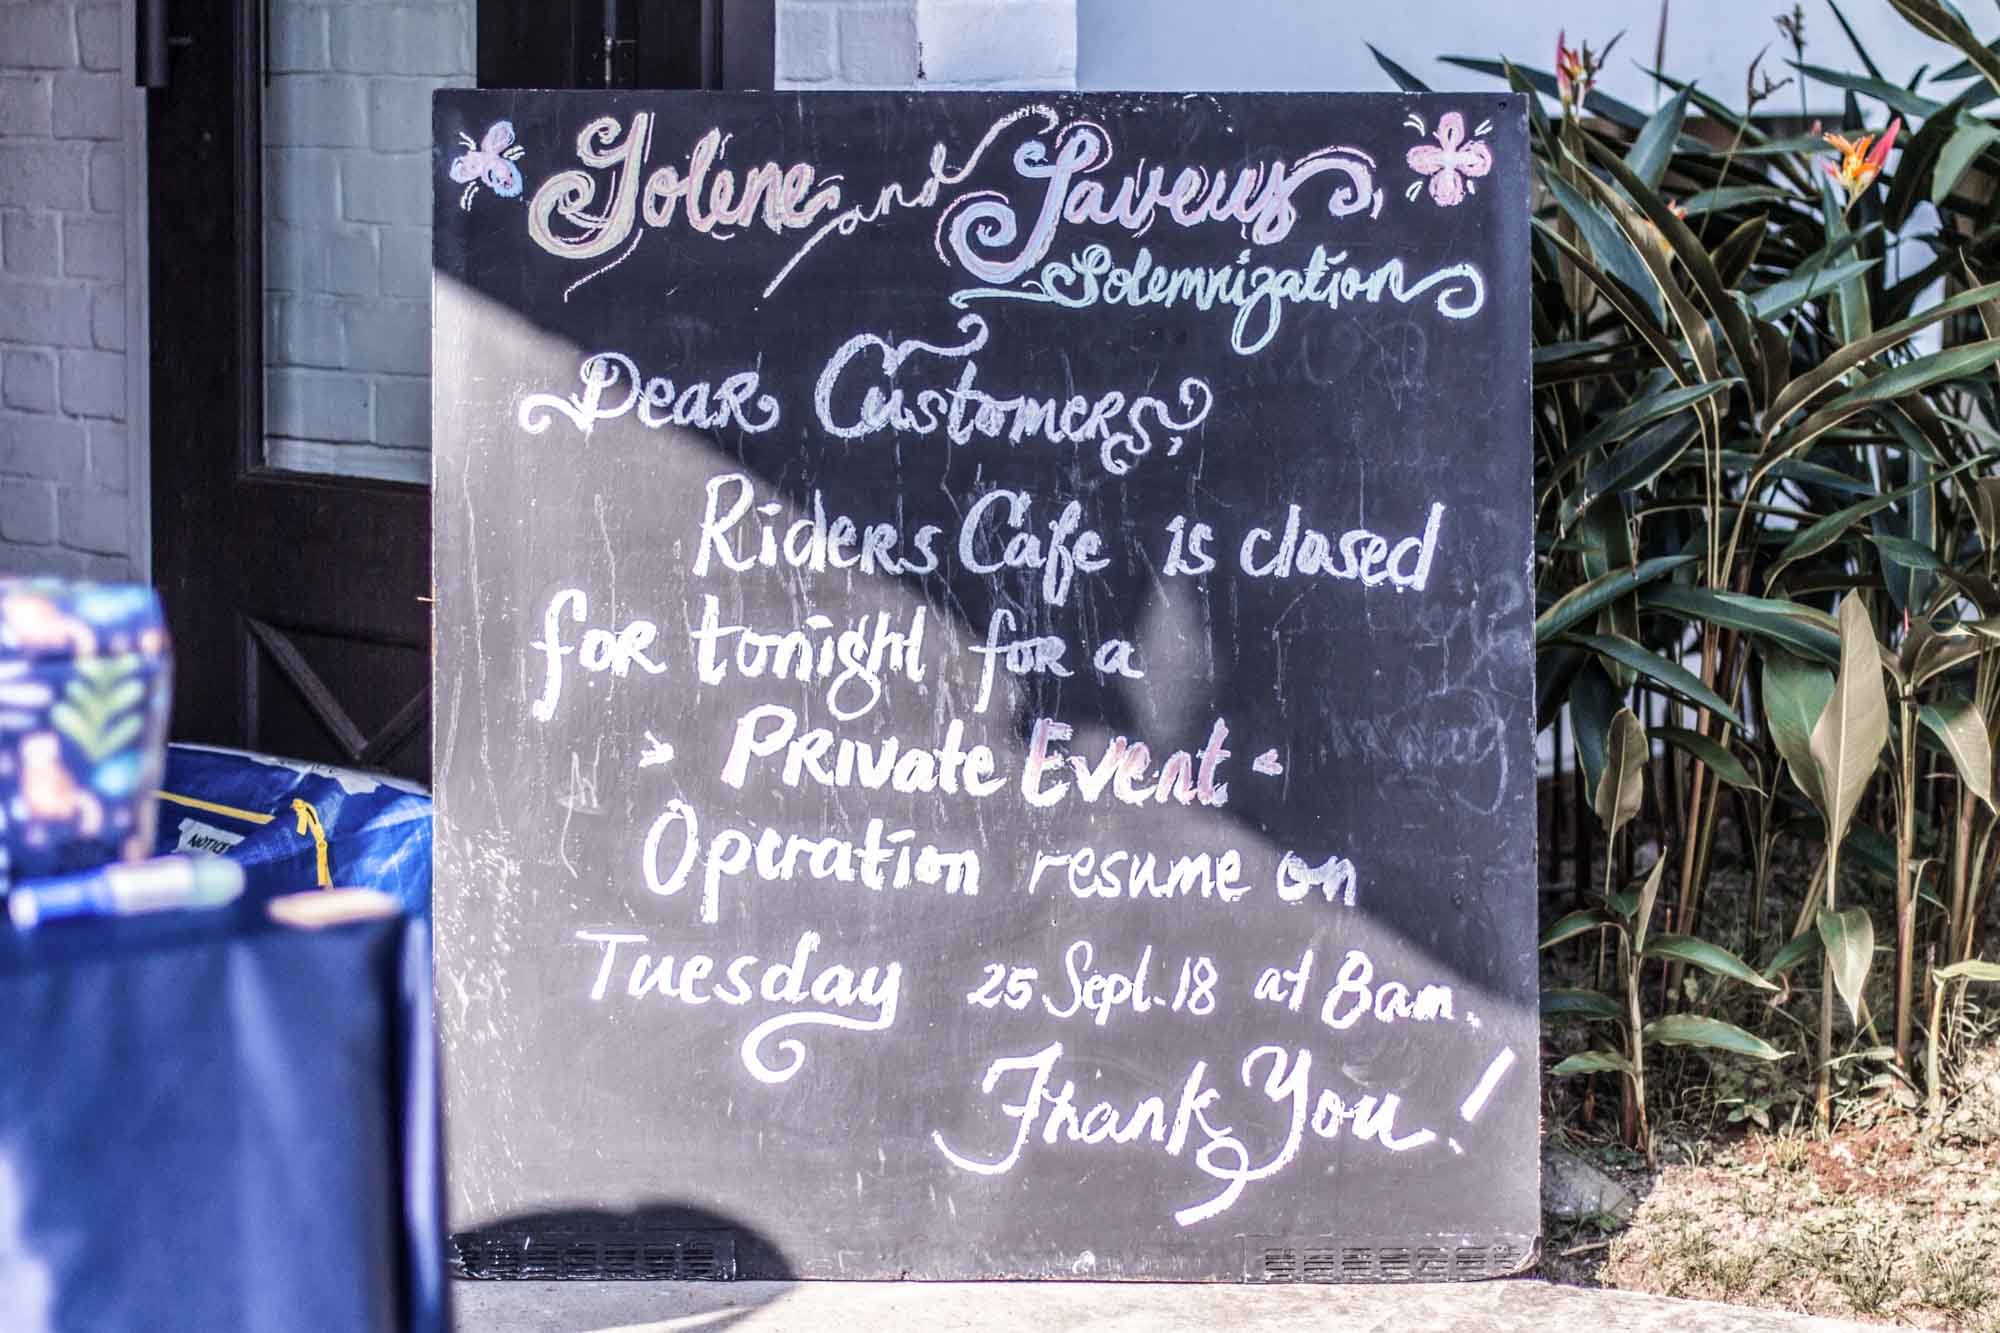 Jolene and Saveus,
Solemnization
Dear Customers,
Riders Cafe is closed
for tonight for a
Private Event
Operation resume on
Tuesday 25 Sept. 18 at 8am.
Thank You!
NOTICE